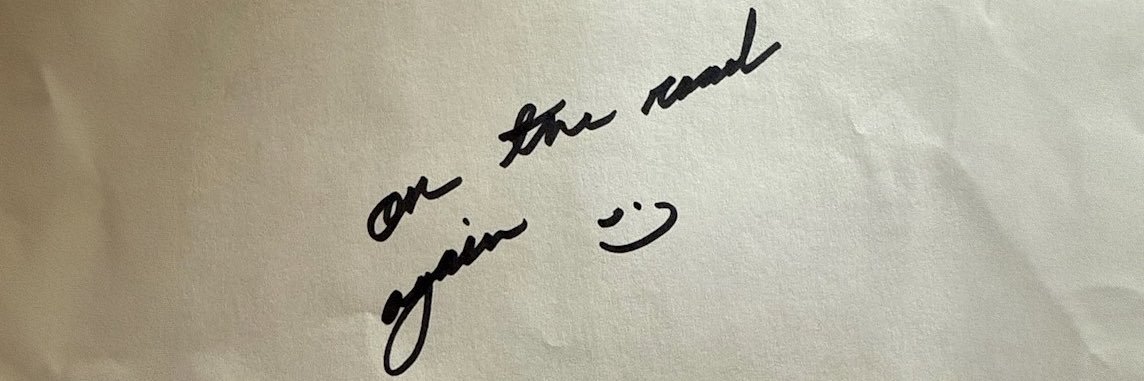 on the road
again :)